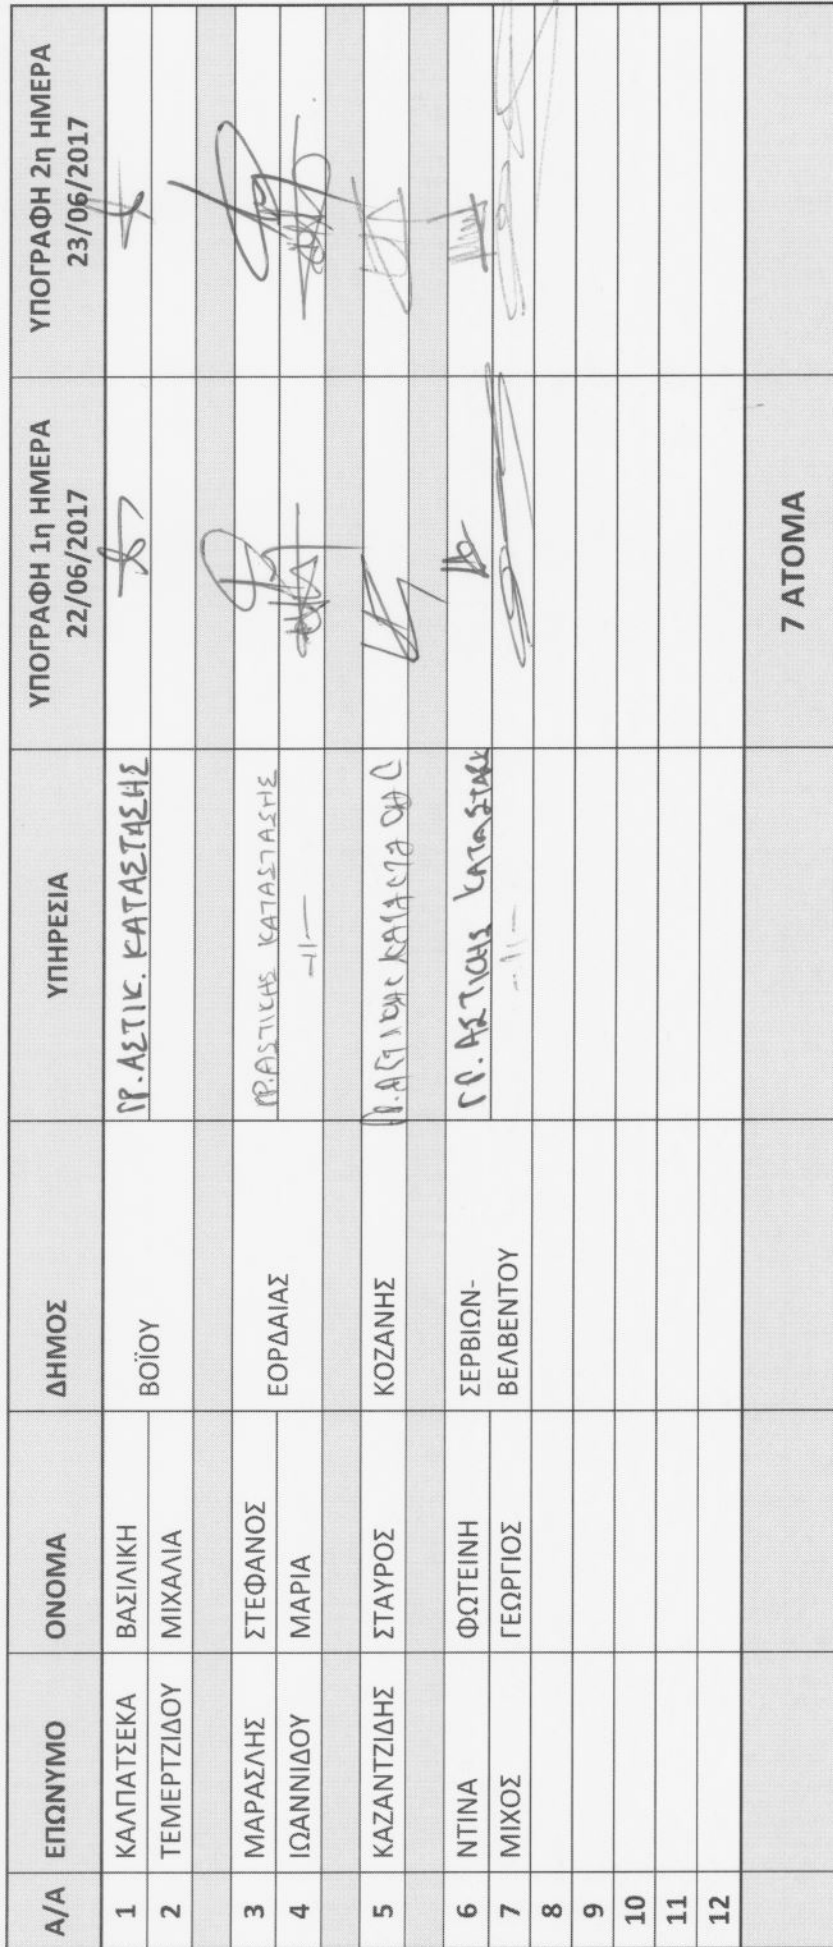 Α/Α ΕΠΩΝΥΜΟ ΟΝΟΜΑ ΔΗΜΟΣ ΥΠΗΡΕΣΙΑ ΥΠΟΓΡΑΦΗ 1η ΗΜΕΡΑ 22/06/2017 ΥΠΟΓΡΑΦΗ 2η ΗΜΕΡΑ 23/06/2017
1 ΚΑΛΠΑΤΣΕΚΑ ΒΑΣΙΛΙΚΗ ΒΟΪΟΥ ΓΡ. ΑΣΤΙΚ. ΚΑΤΑΣΤΑΣΗΣ
2 ΤΕΜΕΡΤΖΙΔΟΥ ΜΙΧΑΛΙΑ
3 ΜΑΡΑΣΛΗΣ ΣΤΕΦΑΝΟΣ ΕΟΡΔΑΙΑΣ ΓΡ. ΑΣΤΙΚΗΣ ΚΑΤΑΣΤΑΣΗΣ
4 ΙΩΑΝΝΙΔΟΥ ΜΑΡΙΑ -//-
5 ΚΑΖΑΝΤΖΙΔΗΣ ΣΤΑΥΡΟΣ ΚΟΖΑΝΗΣ
6 ΝΤΙΝΑ ΦΩΤΕΙΝΗ ΣΕΡΒΙΩΝ- ΓΡ. ΑΣΤΙΚΗΣ
7 ΜΙΧΟΣ ΓΕΩΡΓΙΟΣ ΒΕΛΒΕΝΤΟΥ -//-
8
9
10
11
12
7 ΑΤΟΜΑ